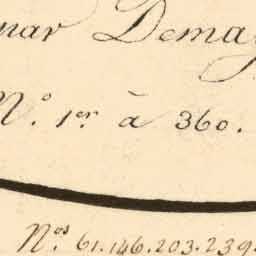 Demay
N.º 1.er à 360.
N.os 61.146.203.239.